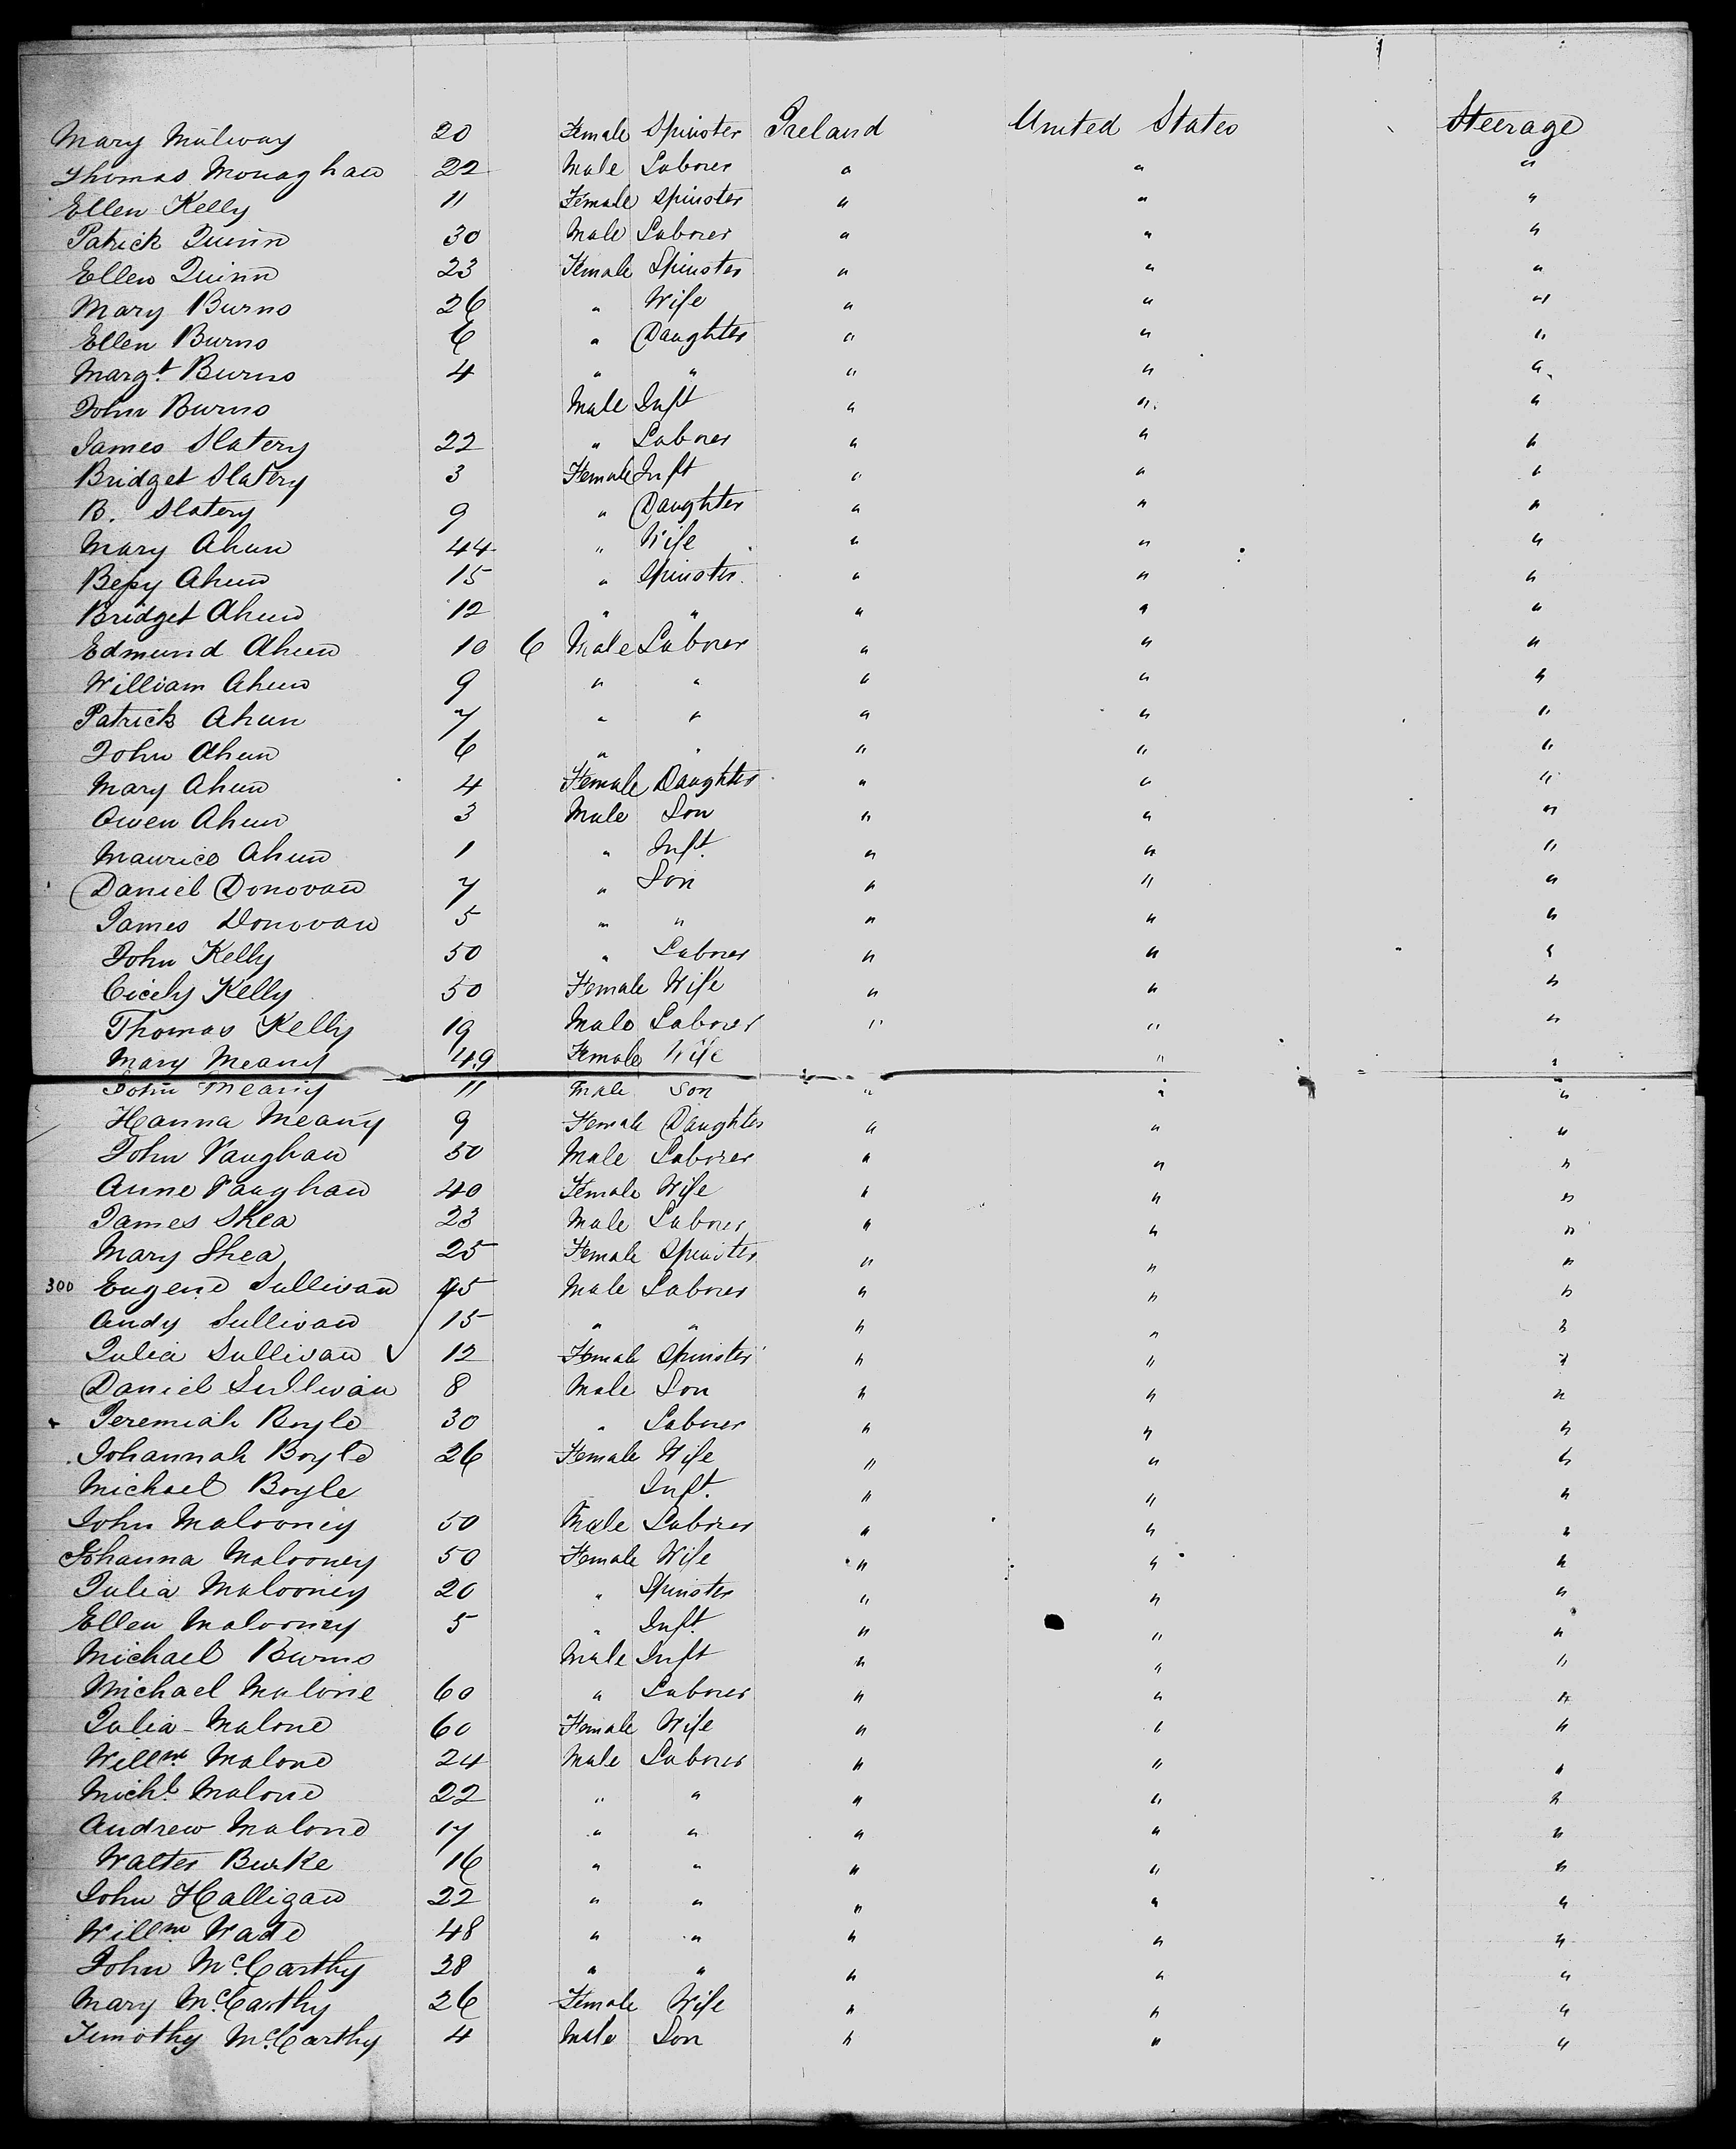 Mary Mulway 20 Female Spinster Ireland United States Steerage
Thomas Monaghan 22 Male Laborer " " "
Ellen Kelly 11 Female Spinster " " "
Patrick Quinn 30 Male Laborer " " "
Ellen Quinn 23 Female Spinster " " "
Mary Burns 26 " Wife " " "
Ellen Burns 6 " Daughter " " "
Margt. Burns 4 " " " " "
John Burns Male Inft " " "
James Slatery 22 " Laborer " " "
Bridget Slatery 3 Female Inft " " "
B. Slatery 9 " Daughter " " "
Mary Ahun 44 " Wife " " "
Bessy Ahun 15 " Spinster " " "
Bridget Ahun 12 " " " " "
Edmund Ahun 10 6 Male Laborer " " "
William Ahun 9 " " " " "
Patrick Ahun 7 " " " " "
John Ahun 6 " " " " "
Mary Ahun 4 Female Daughter " " "
Owen Ahun 3 Male Son " " "
Maurice Ahun 1 " Inft. " " "
Daniel Donovan 7 " Son " " "
James Donovan 5 " " " " "
John Kelly 50 " Laborer " " "
Cicely Kelly 50 Female Wife " " "
Thomas Kelly 19 Male Laborer " " "
Mary Meany 49 Female Wife " "
John Meany 11 Male Son " " "
Hanna Meany 9 Female Daughter " " "
John Vaughan 50 Male Laborer " " "
Anne Vaughan 40 Female Wife " " "
James Shea 23 Male Laborer " " "
Mary Shea 25 Female Spinster " " "
300 Eugene Sullivan 45 Male Laborer " " "
Andy Sullivan 15 " " " " "
Julia Sullivan 12 Female Spinster " " "
Daniel Sullivan 8 Male Son " " "
Jeremiah Boyle 30 " Laborer " " "
Johannah Boyle 26 Female Wife " " "
Michael Boyle Inft. " " "
John Malooney 50 Male Laborer " " "
Johanna Malooney 50 Female Wife " " "
Julia Malooney 20 " Spinster " " "
Ellen Malooney 5 " Inft. " " "
Michael Burns Male Inft " " "
Michael Malone 60 " Laborer " " "
Julia Malone 60 Female Wife " " "
Willm Malone 24 Male Laborer " " "
Michl. Malone 22 " " " " "
Andrew Malone 17 " " " " "
Walter Burke 16 " " " " "
John Halligan 22 " " " " "
Willm Wade 48 " " " " "
John McCarthy 28 " " " " "
Mary McCarthy 26 Female Wife " " "
Timothy McCarthy 4 Male Son " " "